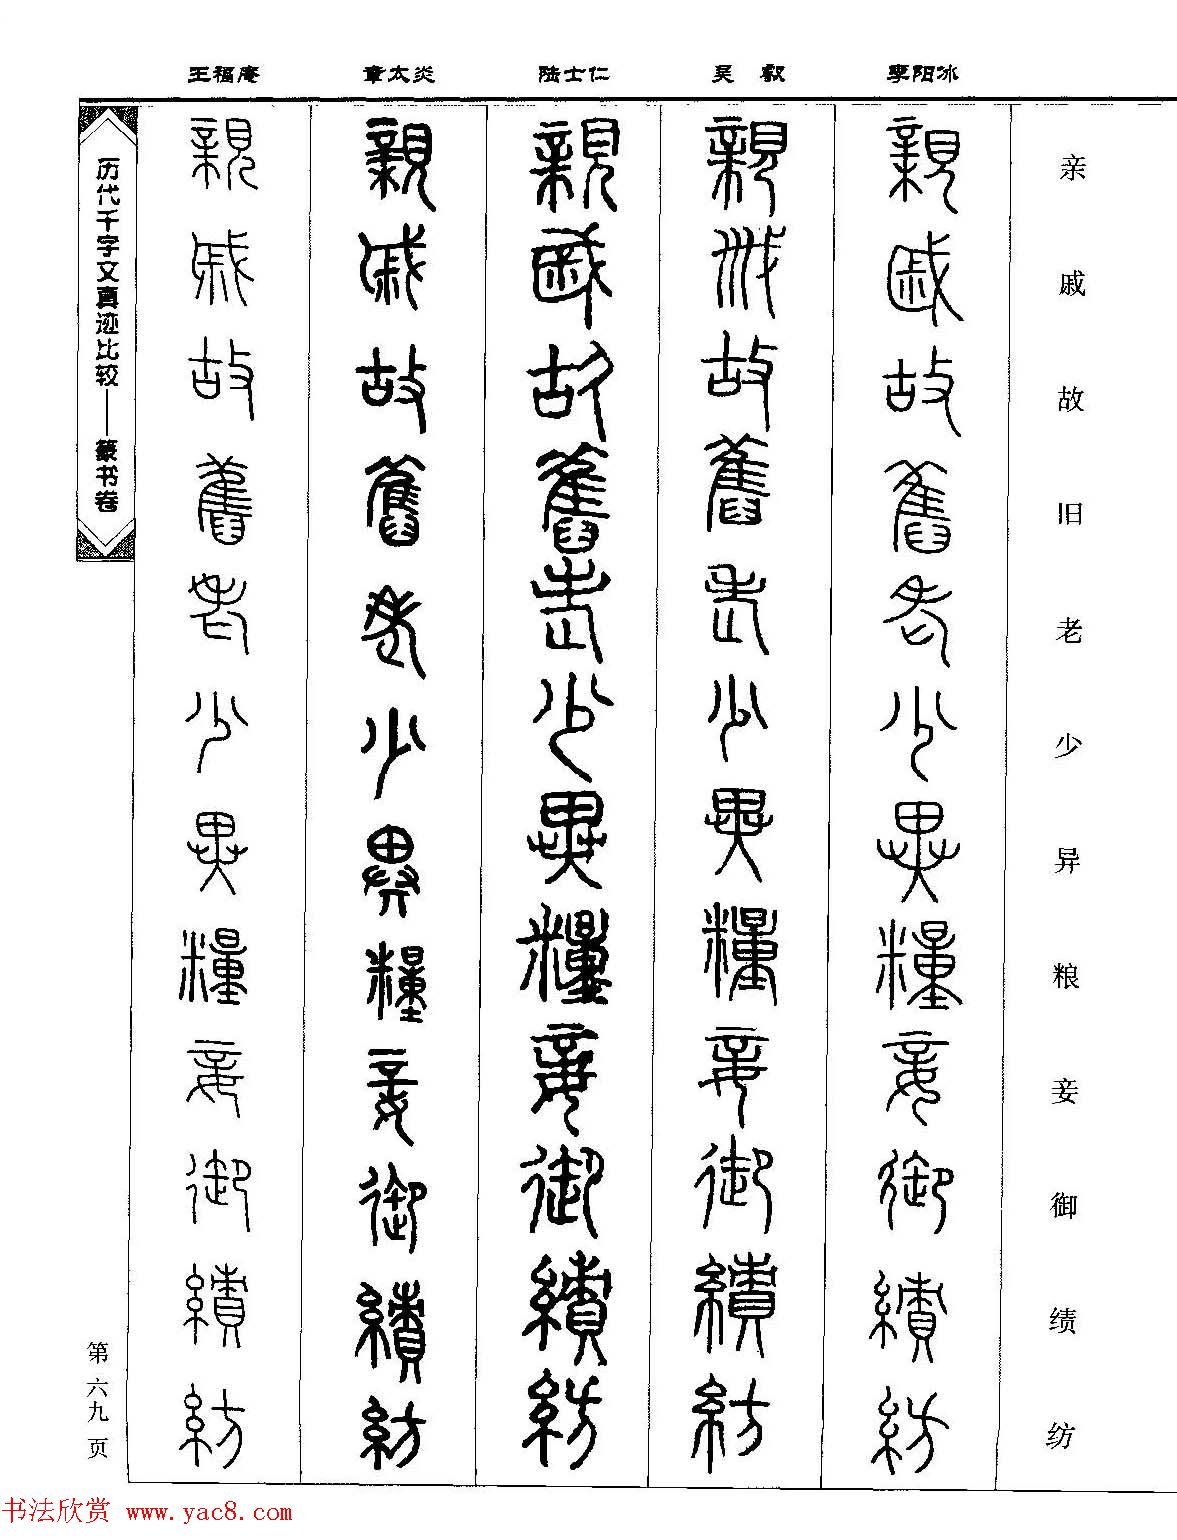 李阳冰
吴 叡
陆士仁
章太炎
王福庵
亲戚故旧老少异粮妾御绩纺
親戚故舊老少異糧妾御績紡
親戚故舊老少異糧妾御績紡
親戚故舊老少異糧妾御績紡
親戚故舊老少異糧妾御績紡
親戚故舊老少異糧妾御績紡
历代千字文真迹比较——篆书卷
第六九页
书法欣赏 www.yac8.com